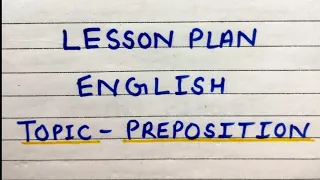 LESSON PLAN
ENGLISH
TOPIC - PREPOSITION